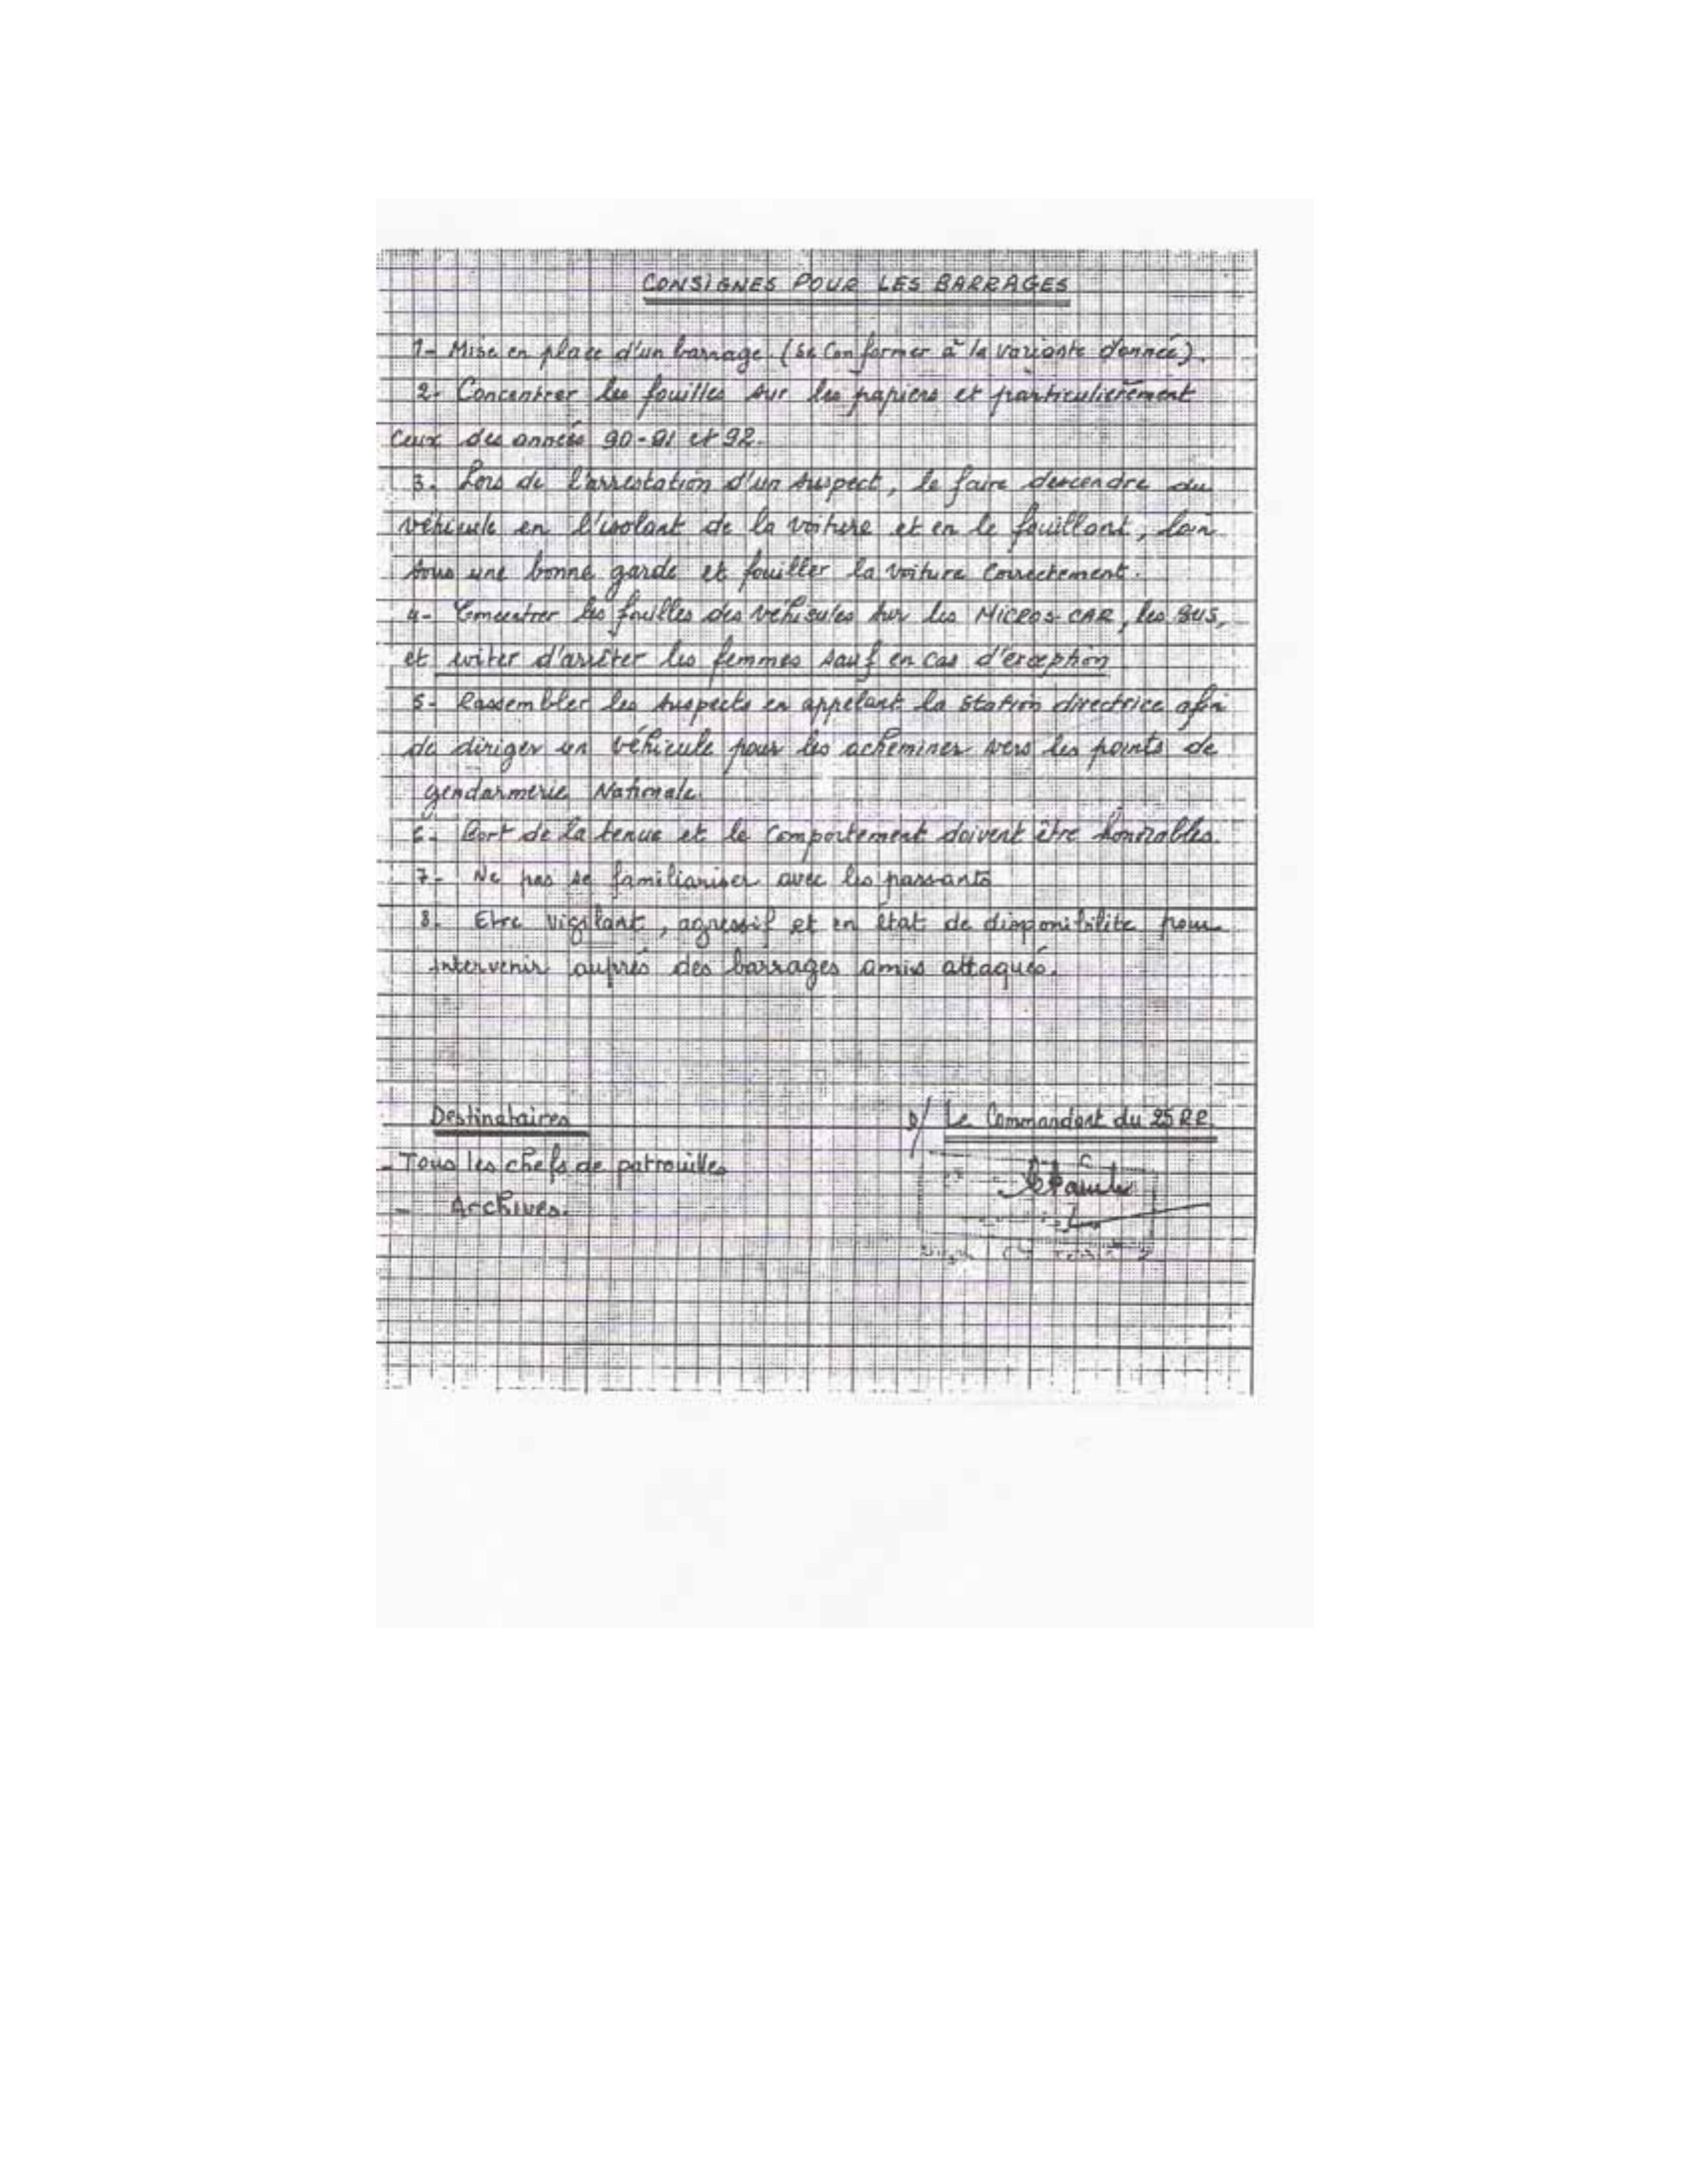 CONSIGNES POUR LES BARRAGES
1- Mise en place d'un barrage. (Se Conformer à la variante donnée).
2- Concentrer les fouilles sur les papiers et particulièrement
Ceux des années 90-91 et 92.
3. Lors de l'arrestation d'un suspect, le faire descendre du
véhicule en l'isolant de la voiture et en le fouillant, loin
sous une bonne garde et fouiller la voiture Correctement.
4- Concentrer les fouilles des véhicules sur les MICROS-CAR, les BUS,
et eviter d'arrêter les femmes sauf en cas d'exception
5- Rassembler les suspects en appelant la station directrice afin
de diriger un véhicule pour les acheminer vers les points de
gendarmerie Nationale.
6- Port de la tenue et le Comportement doivent être honorables.
7- Ne pas se familiariser avec les passants
8. Etre vigilant, agressif et en état de disponibilité pour
intervenir auprès des barrages amis attaqués.
Destinataires
P/ Le Commandant du 25 RR.
- Tous les chefs de patrouilles
- Archives.